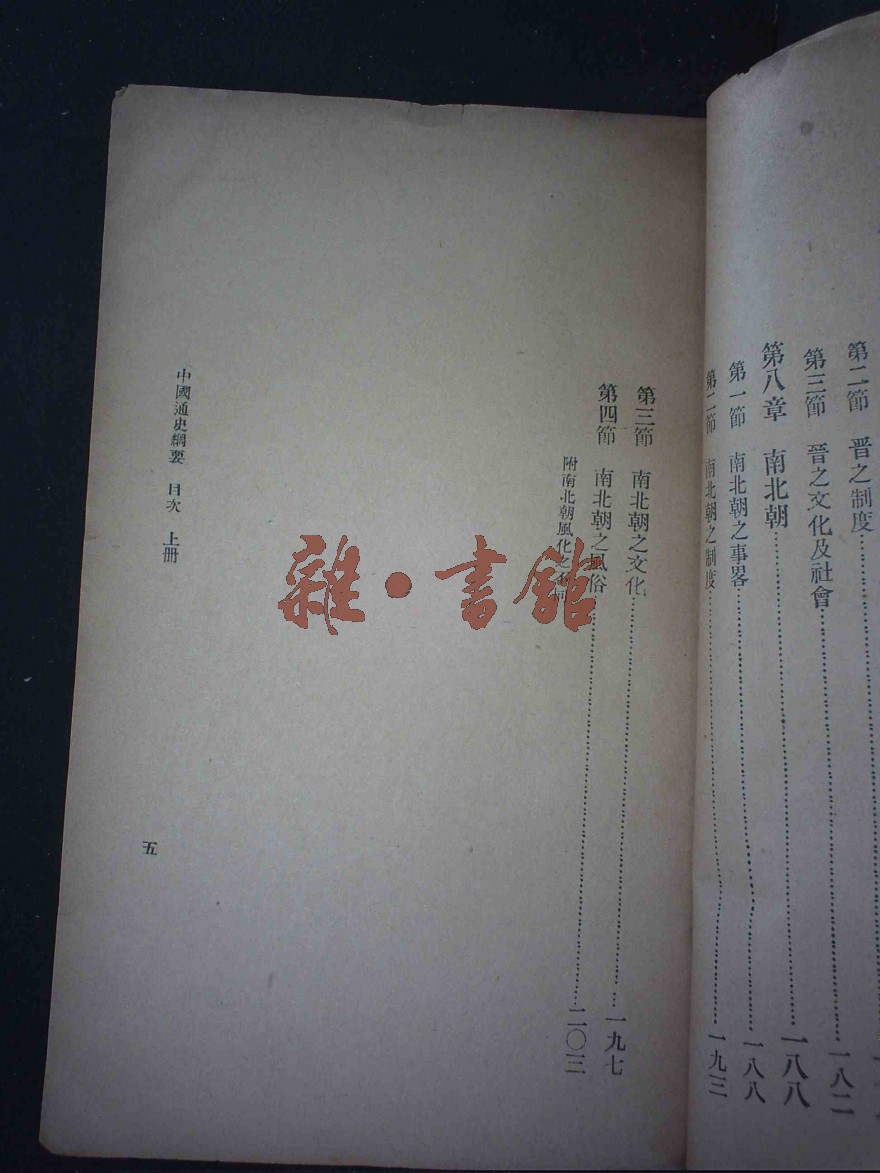 第二節 晋之制度
第三節 晉之文化及社會……一八二
第八章 南北朝……一八八
第一節 南北朝之事畧……一八八
第二節 南北朝之制度……一九三
第三節 南北朝之文化……一九七
第四節 南北朝之風俗……二〇三
附南北朝風化之
中國通史綱要 目次 上册
五
雜·書館